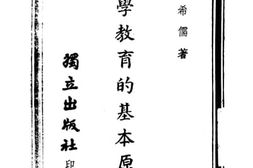 希儒著
學教育的基本原
獨立出版社印